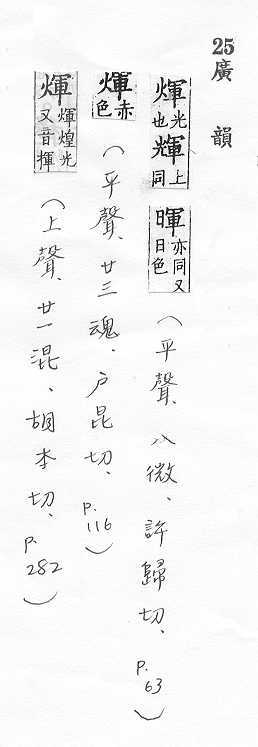 25 廣韻
煇光也輝上同暉亦同又日色(平聲、八微、許歸切、p.63)
煇赤色(平聲、廿三魂、戶昆切、p.116)
煇煇煌光又音揮(上聲、廿一混、胡本切、p.282)